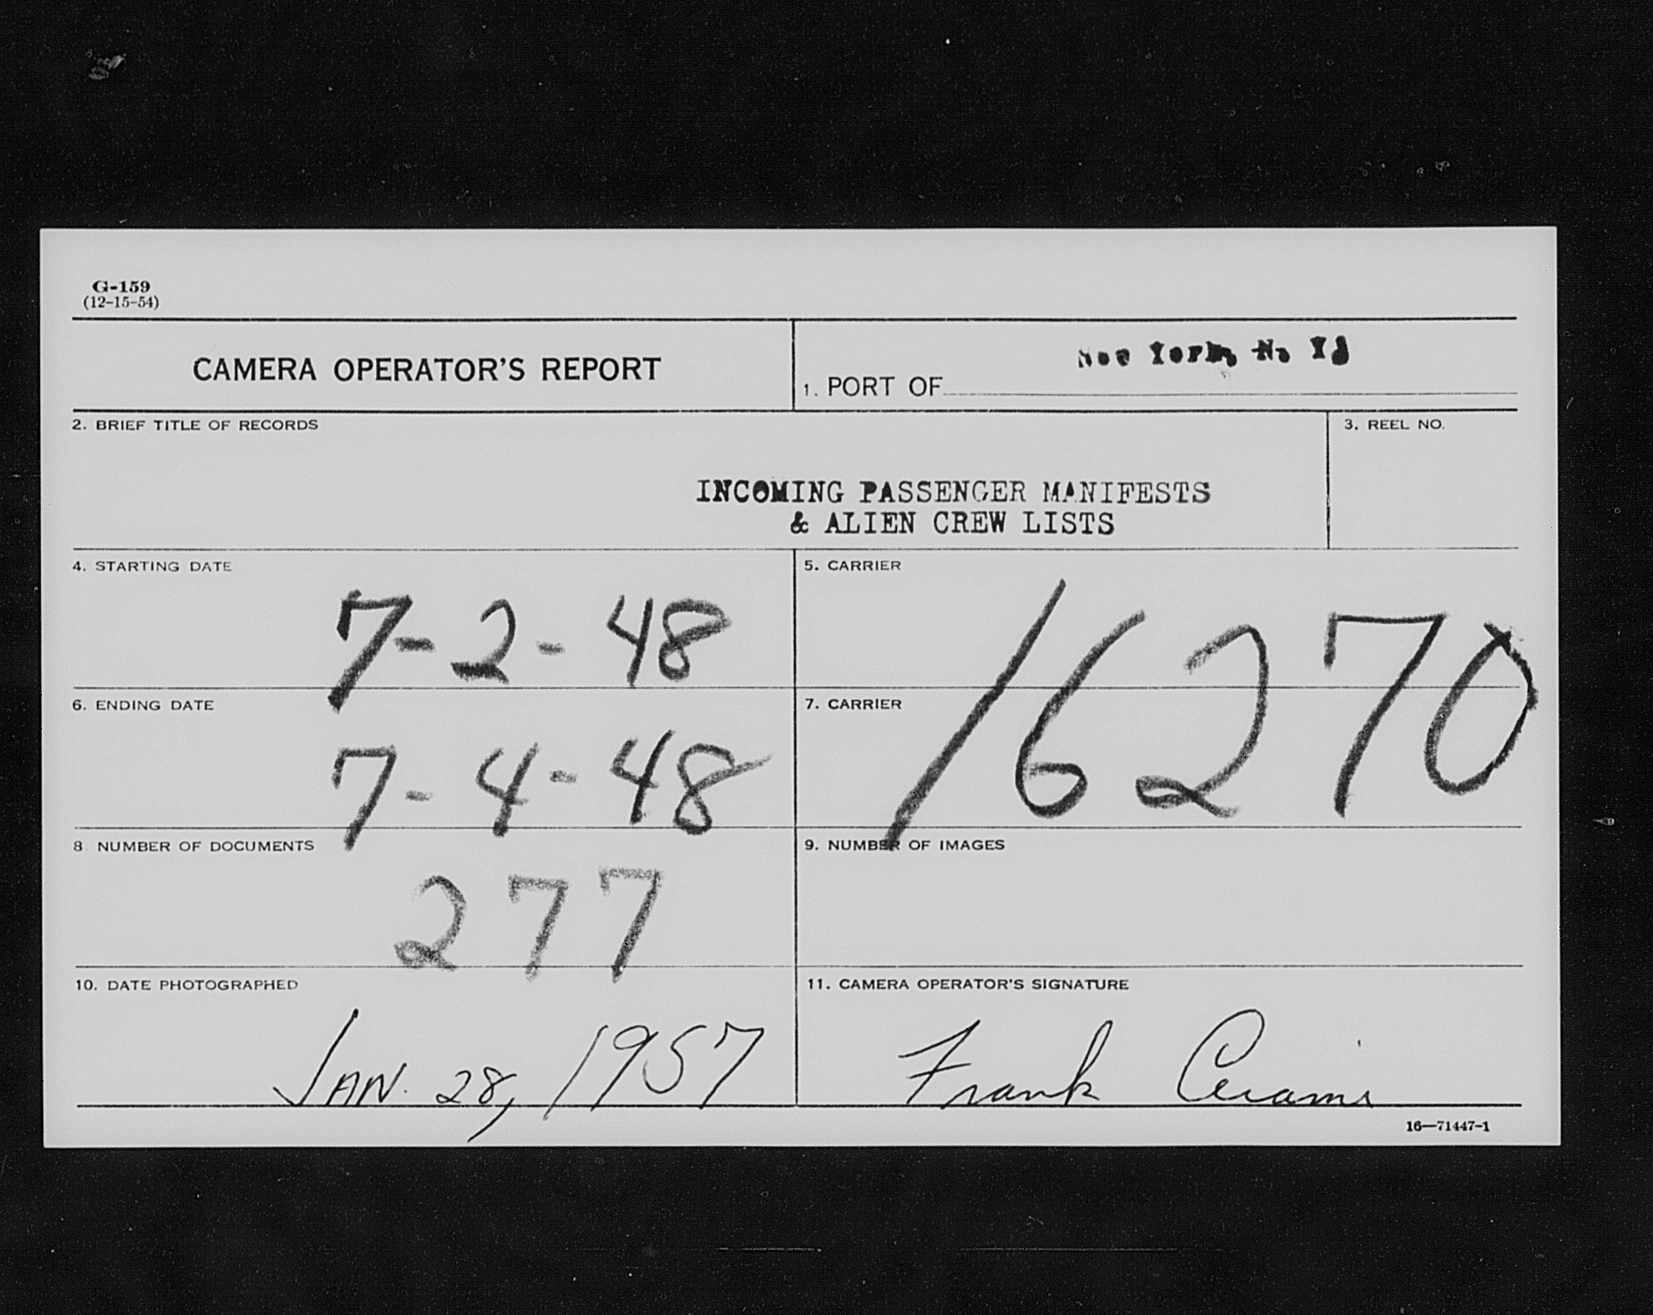 G-159
(12-15-54)
CAMERA OPERATOR'S REPORT
1. PORT OF New York, N. Y.
2. BRIEF TITLE OF RECORDS
3. REEL NO.
INCOMING PASSENGER MANIFESTS
& ALIEN CREW LISTS
4. STARTING DATE
7-2-48
5. CARRIER
16270
6. ENDING DATE
7-4-48
7. CARRIER
8 NUMBER OF DOCUMENTS
277
9. NUMBER OF IMAGES
10. DATE PHOTOGRAPHED
JAN. 28, 1957
11. CAMERA OPERATOR'S SIGNATURE
Frank Cerami
16—71447-1